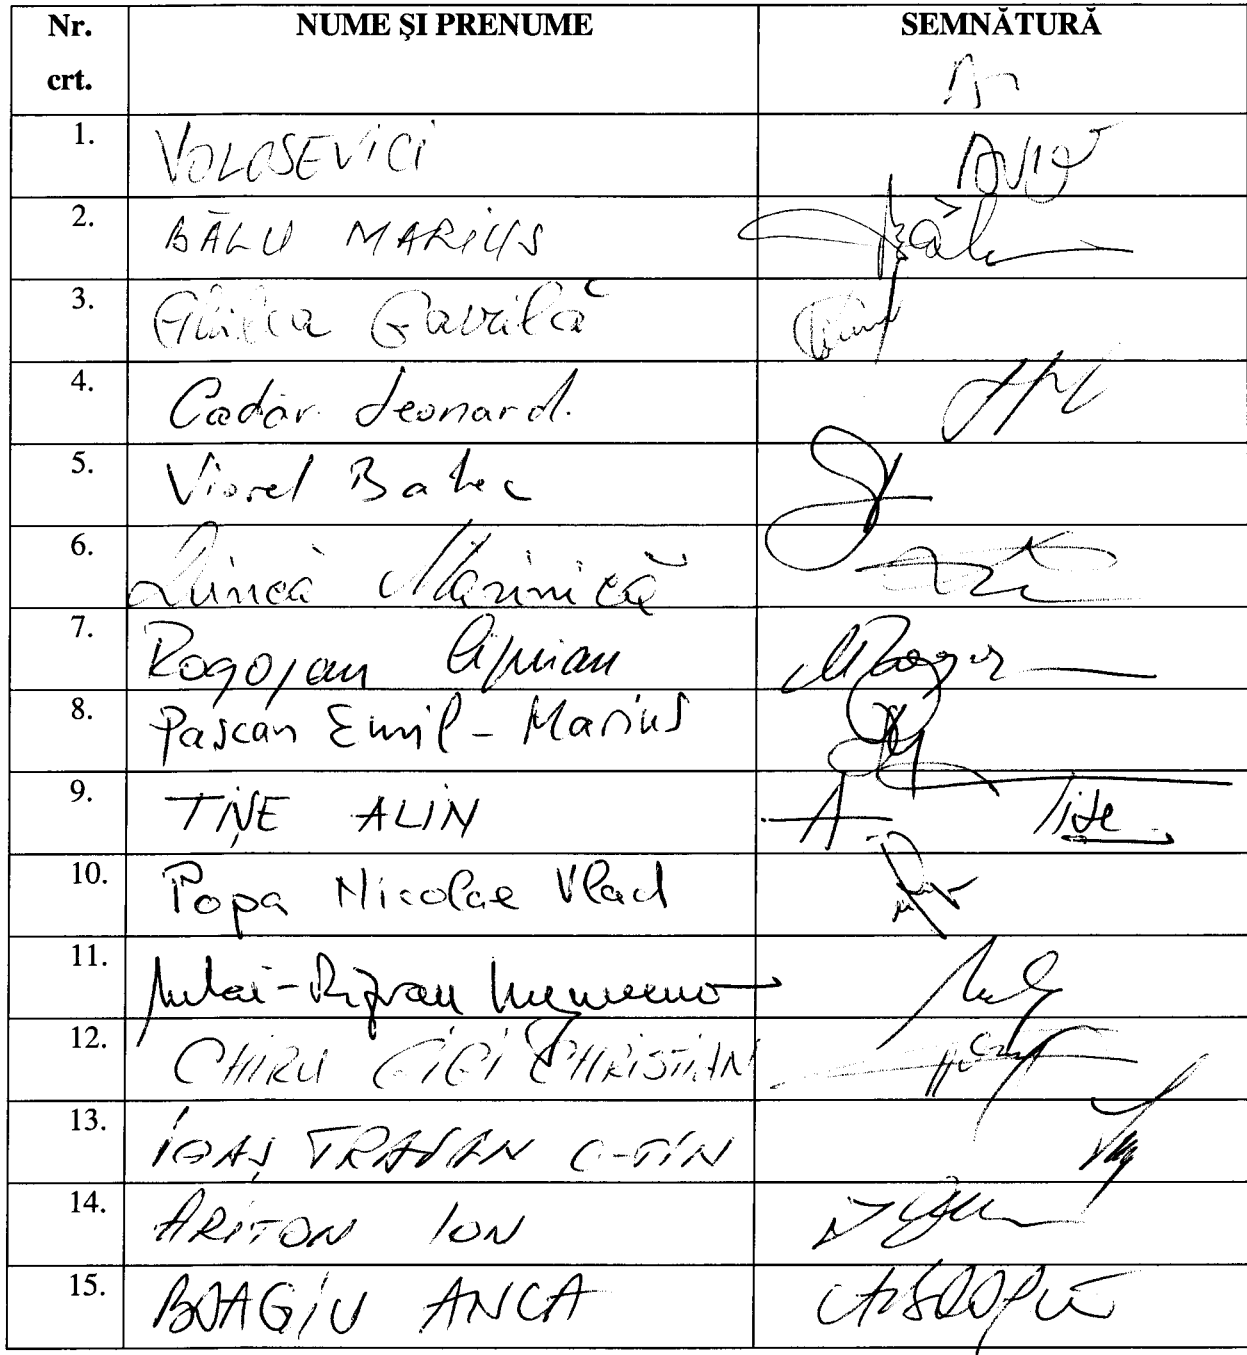 Nr. crt. NUME ŞI PRENUME SEMNĂTURĂ
1. VOLOSEVICI
2. BĂLU MARIUS Bălu
3. Ghilea Gavrilă
4. Cadar Leonard.
5. Viorel Batec
6. Dincă Marinică
7. Rogojan Ciprian MRogoz
8. Pascan Emil - Marius
9. TIȘE ALIN A Tișe
10. Popa Nicolae Vlad
11. Mihai-Răzvan Ungureanu
12. CHIRU GIGI CHRISTIAN
13. IGAȘ TRAIAN C-TIN
14. ARITON ION
15. BOAGIU ANCA